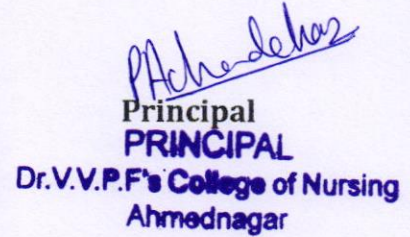 Principal
PRINCIPAL
Dr.V.V.P.F's College of Nursing
Ahmednagar